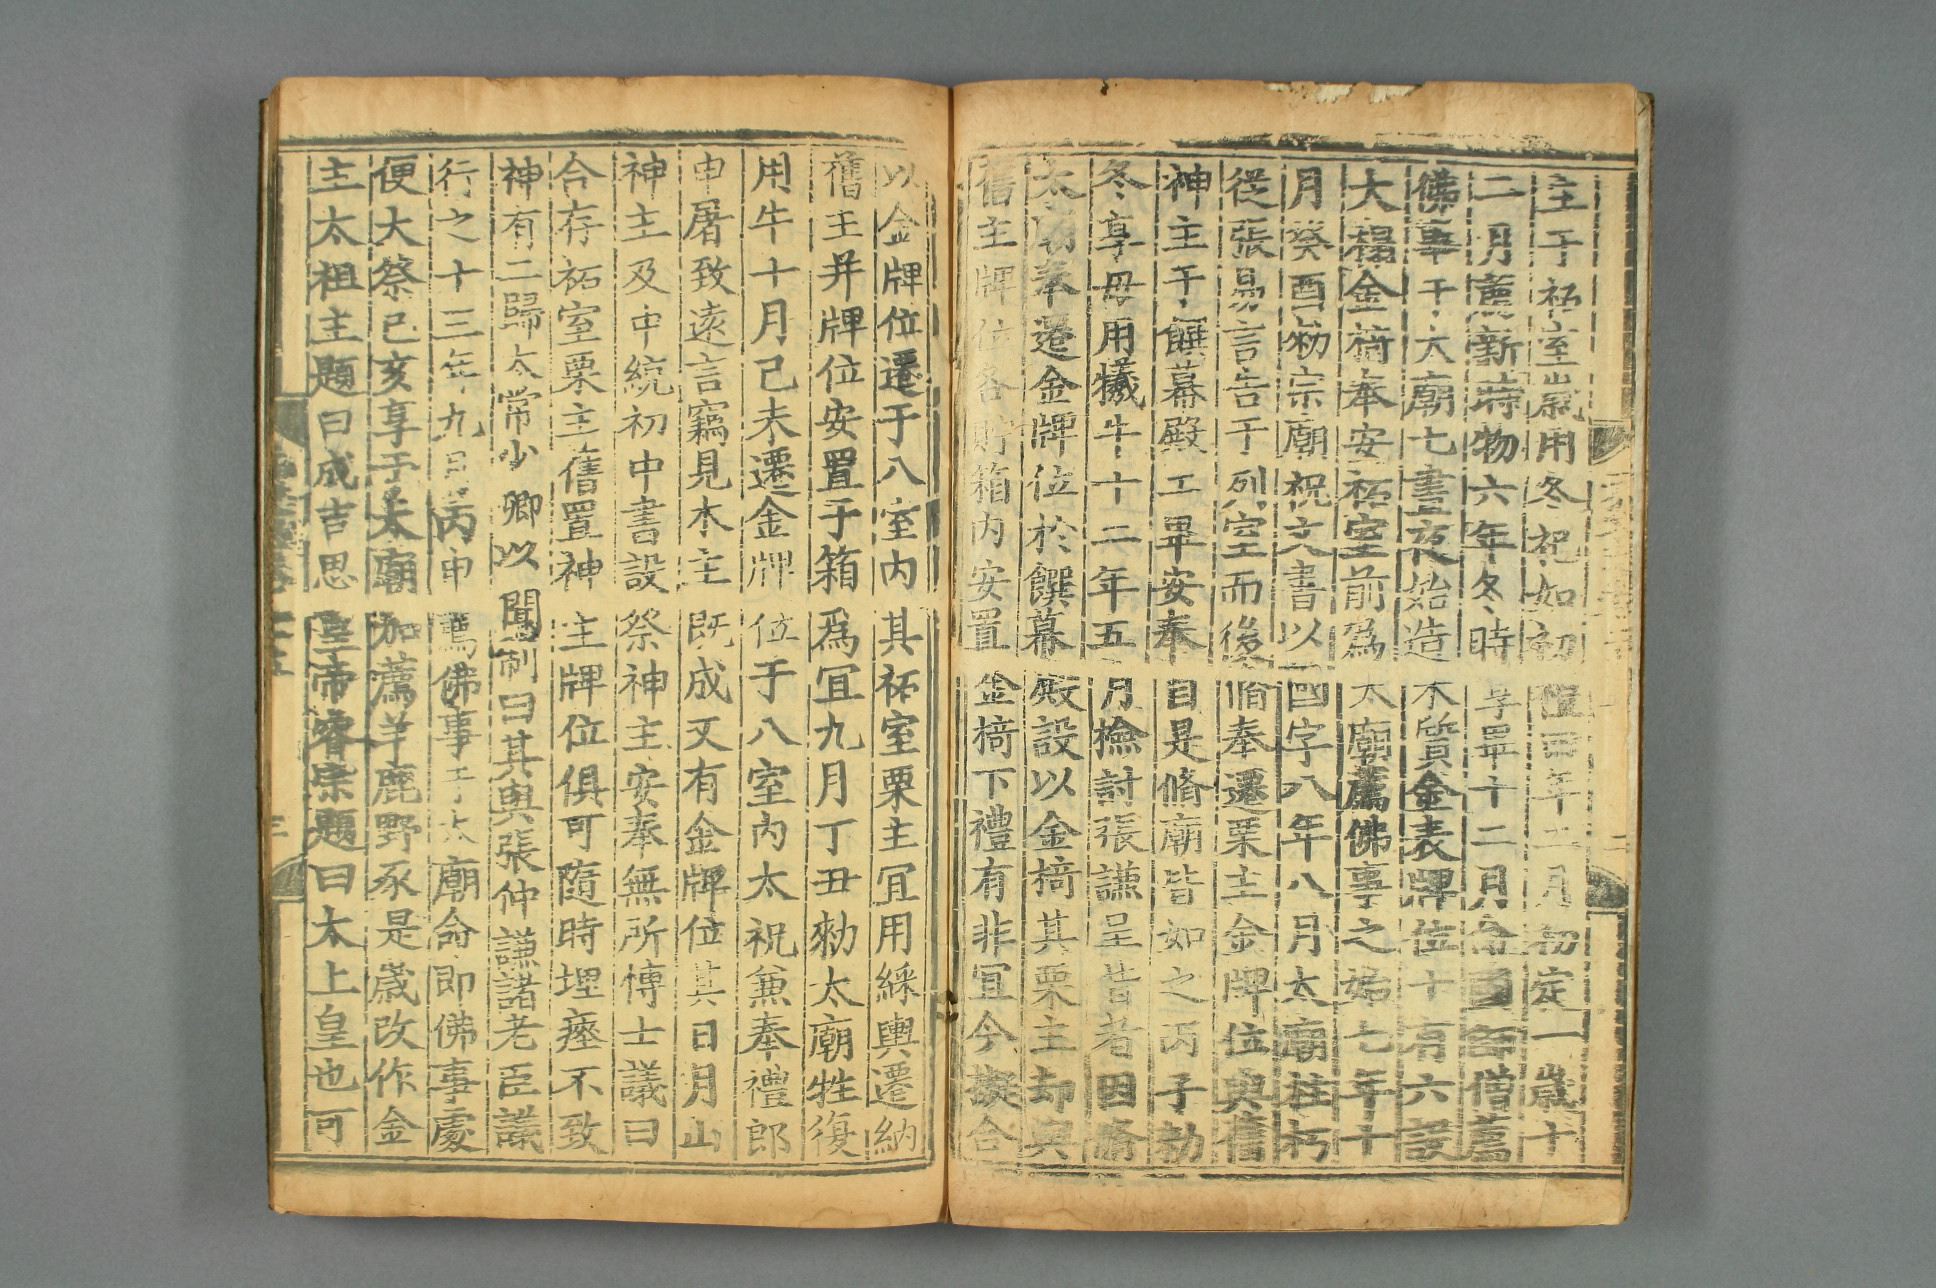 主于祏室歲用冬祀如初禮四年二月初定一歲十
二月薦新時物六年冬時享畢十二月命國師僧薦
佛事于太廟七晝夜始造木質金表牌位十有六設
大榻金椅奉安祏室前爲太廟薦佛事之始七年十
月癸酉勑宗廟祝文書以國字八年八月太廟柱朽
從張易言告于列室而後脩奉遷栗主金牌位與舊
神主于饌幕殿工畢安奉自是脩廟皆如之丙子勑
冬享毋用犧牛十二年五月撿討張謙呈昔者因脩
太廟奉遷金牌位於饌幕殿設以金椅其栗主却與
舊主牌位各貯箱內安置金椅下禮有非宜今擬合
以金牌位遷于八室內其祏室栗主宜用綵輿遷納
舊主并牌位安置于箱爲宜九月丁丑勑太廟牲復
用牛十月己未遷金牌位于八室內太祝兼奉禮郎
申屠致遠言竊見木主旣成又有金牌位其日月山
神主及中統初中書設祭神主安奉無所博士議曰
合存祏室栗主舊置神主牌位俱可隨時埋瘞不致
神有二歸太常少卿以聞制曰其與張仲謙諸老臣議
行之十三年九月丙申薦佛事于太廟命即佛事處
便大祭己亥享于太廟加薦羊鹿野豕是歲改作金
主太祖主題曰成吉思皇帝睿宗題曰太上皇也可